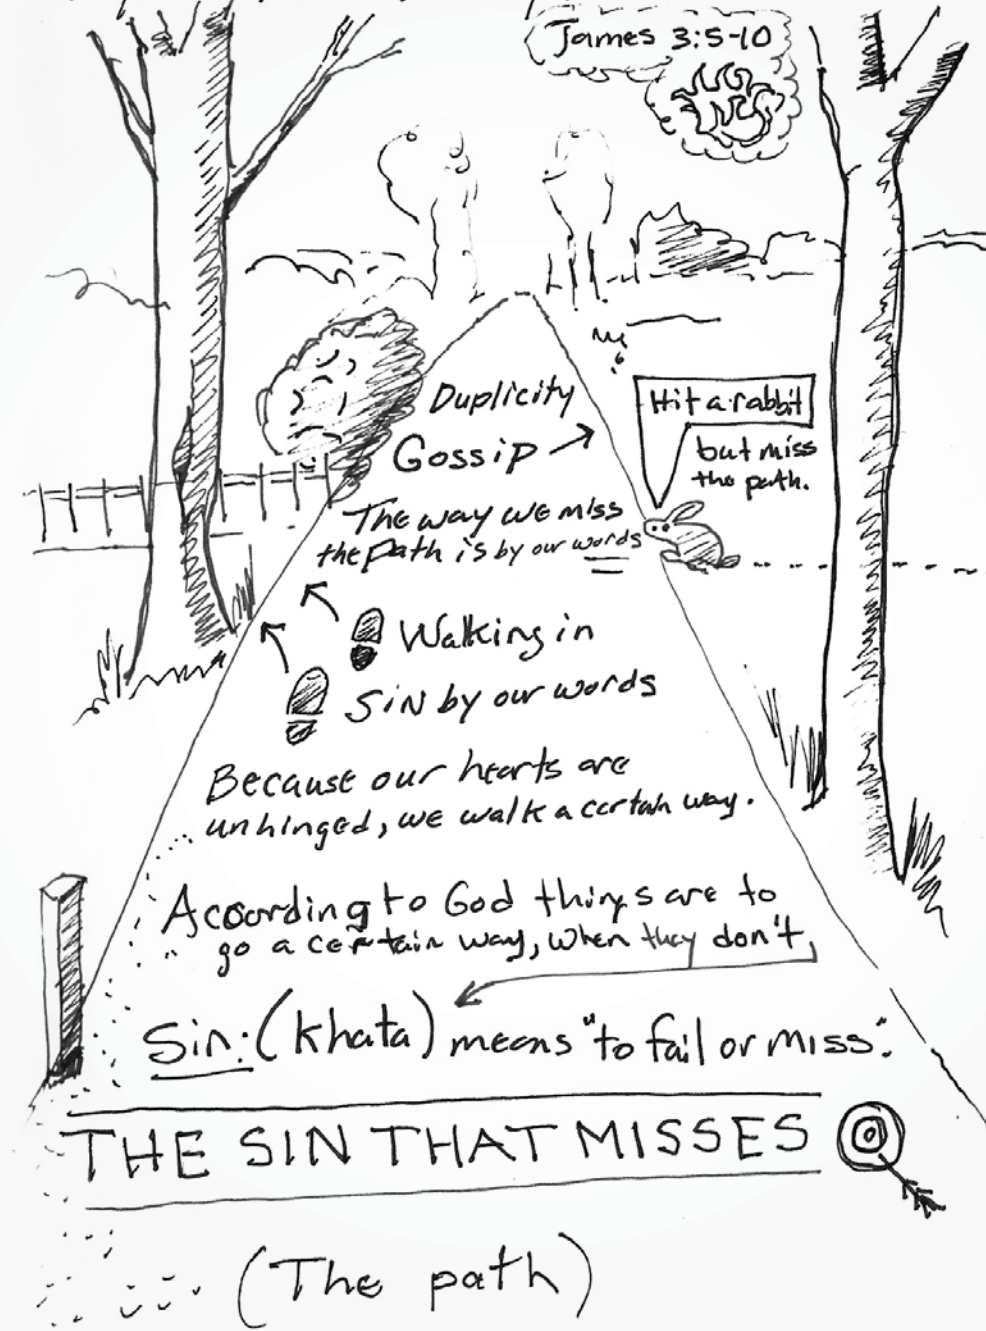 James 3:5-10
Duplicity
Gossip
Hit a rabbit
but miss
the path.
The way we miss
the path is by our words
Walking in
Sin by our words
Because our hearts are
unhinged, we walk a certain way.
According to God things are to
go a certain way, when they don't,
Sin: (khata) means "to fail or miss".
THE SIN THAT MISSES
(The path)